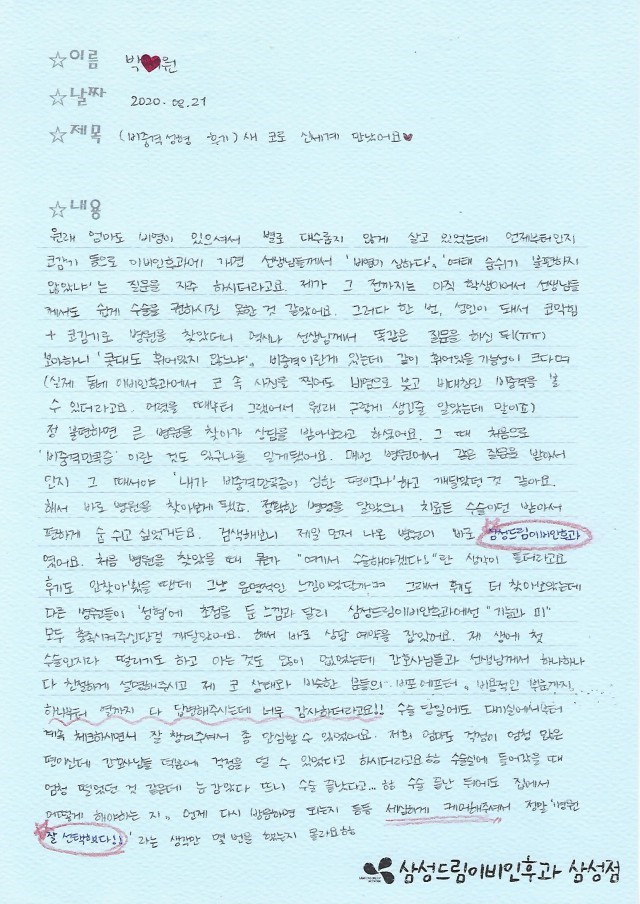 ☆이름 박♥원
☆날짜 2020.08.21
☆제목 (비중격성형 후기) 새 코로 신세계 만났어요♥
☆내용
원래 엄마도 비염이 있으셔서 별로 대수롭지 않게 살고 있었는데 언제부터인지
코감기 등으로 이비인후과에 가면 선생님들께서 '비염이 심하다', '여태 숨쉬기 불편하지
않았냐'는 질문을 자주 하시더라고요. 제가 그 전까지는 아직 학생이어서 선생님들
께서도 쉽게 수술을 권하시진 못한 것 같았어요. 그러다 한 번, 성인이 돼서 코막힘
+ 코감기로 병원을 찾았더니 역시나 선생님께서 똑같은 질문을 하신 뒤(ㅠㅠ)
보아하니 '콧대도 휘어있지 않느냐', 비중격이란게 있는데 같이 휘어있을 가능성이 크다며
(실제 동네 이비인후과에서 코 속 사진을 찍어도 비염으로 붓고 비대칭인 비중격을 볼
수 있더라고요. 어렸을 때부터 그랬어서 원래 구렇게 생긴줄 알았는데 말이죠)
정 불편하면 큰 병원을 찾아가 상담을 받아보라고 하셨어요. 그 때 처음으로
'비중격만곡증' 이란 것도 있구나를 알게됐어요. 매번 병원에서 같은 질문을 받아서
인지 그 때서야 '내가 비중격만곡증이 심한 편이구나'하고 깨달았던 것 같아요.
해서 바로 병원을 찾아보게 됐죠. 정확한 병명을 알았으니 치료든 수술이던 받아서
편하게 숨 쉬고 싶었거든요. 검색해보니 제일 먼저 나온 병원이 바로 삼성드림이비인후과
였어요. 처음 병원을 찾았을 때 뭔가 "여기서 수술해야겠다!"란 생각이 들더라고요
후기도 안찾아봤을 땐데 그냥 운명적인 느낌이었달까ㅋㅋ 그래서 뭐도 더 찾아보았는데
다른 병원들이 '성형'에 초점을 둔 느낌과 달리 삼성드림이비인후과에선 "기능과 미"
모두 충족시켜주신단걸 깨달았어요. 해서 바로 상담 예약을 잡았어요. 제 생에 첫
수술인지라 떨리기도 하고 아는 것도 많이 없었는데 간호사님들과 선생님께서 하나하나
다 친절하게 설명해주시고 제 코 상태와 비슷한 분들의 비포에프터, 비용적인 부분까지..
하나부터 열까지 다 답변해주시는데 너무 감사하더라고요!! 수술 당일에도 대기실에서부터
계속 체크하시면서 잘 챙겨주셔서 좀 안심할 수 있었어요. 저희 엄마도 걱정이 엄청 많은
편이신데 간호사님들 덕분에 걱정을 덜 수 있었다고 하시더라고요ㅎㅎ 수술실에 들어갔을 때
엄청 떨었던 것 같은데 눈 감았다 뜨니 수술 끝났다고...ㅎㅎ 수술 끝난 뒤에도 집에서
어떻게 해야하는 지, 언제 다시 방문하면 되는지 등등 세심하게 케어해주셔서 정말 '병원
잘 선택했다!!' 라는 생각만 몇 번을 했는지 몰라요ㅎㅎ
삼성드림이비인후과 삼성점